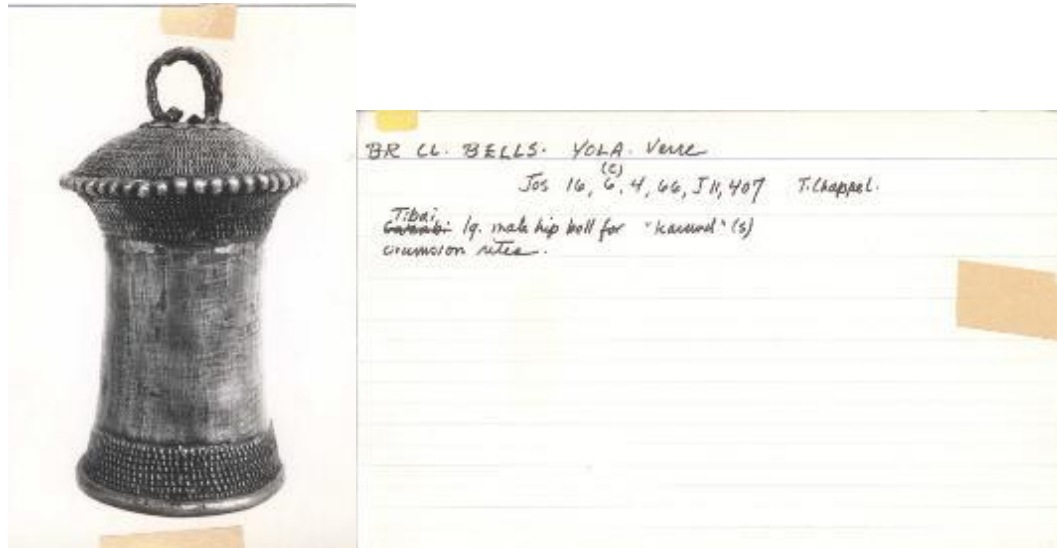 BR CL. BELLS. YOLA. Verre
(c)
Jos 16, 6, 4, 66, J 11, 407 T. Chappel.
Tibai
lg. male hip bell for "karund" (s)
circumcision rites.